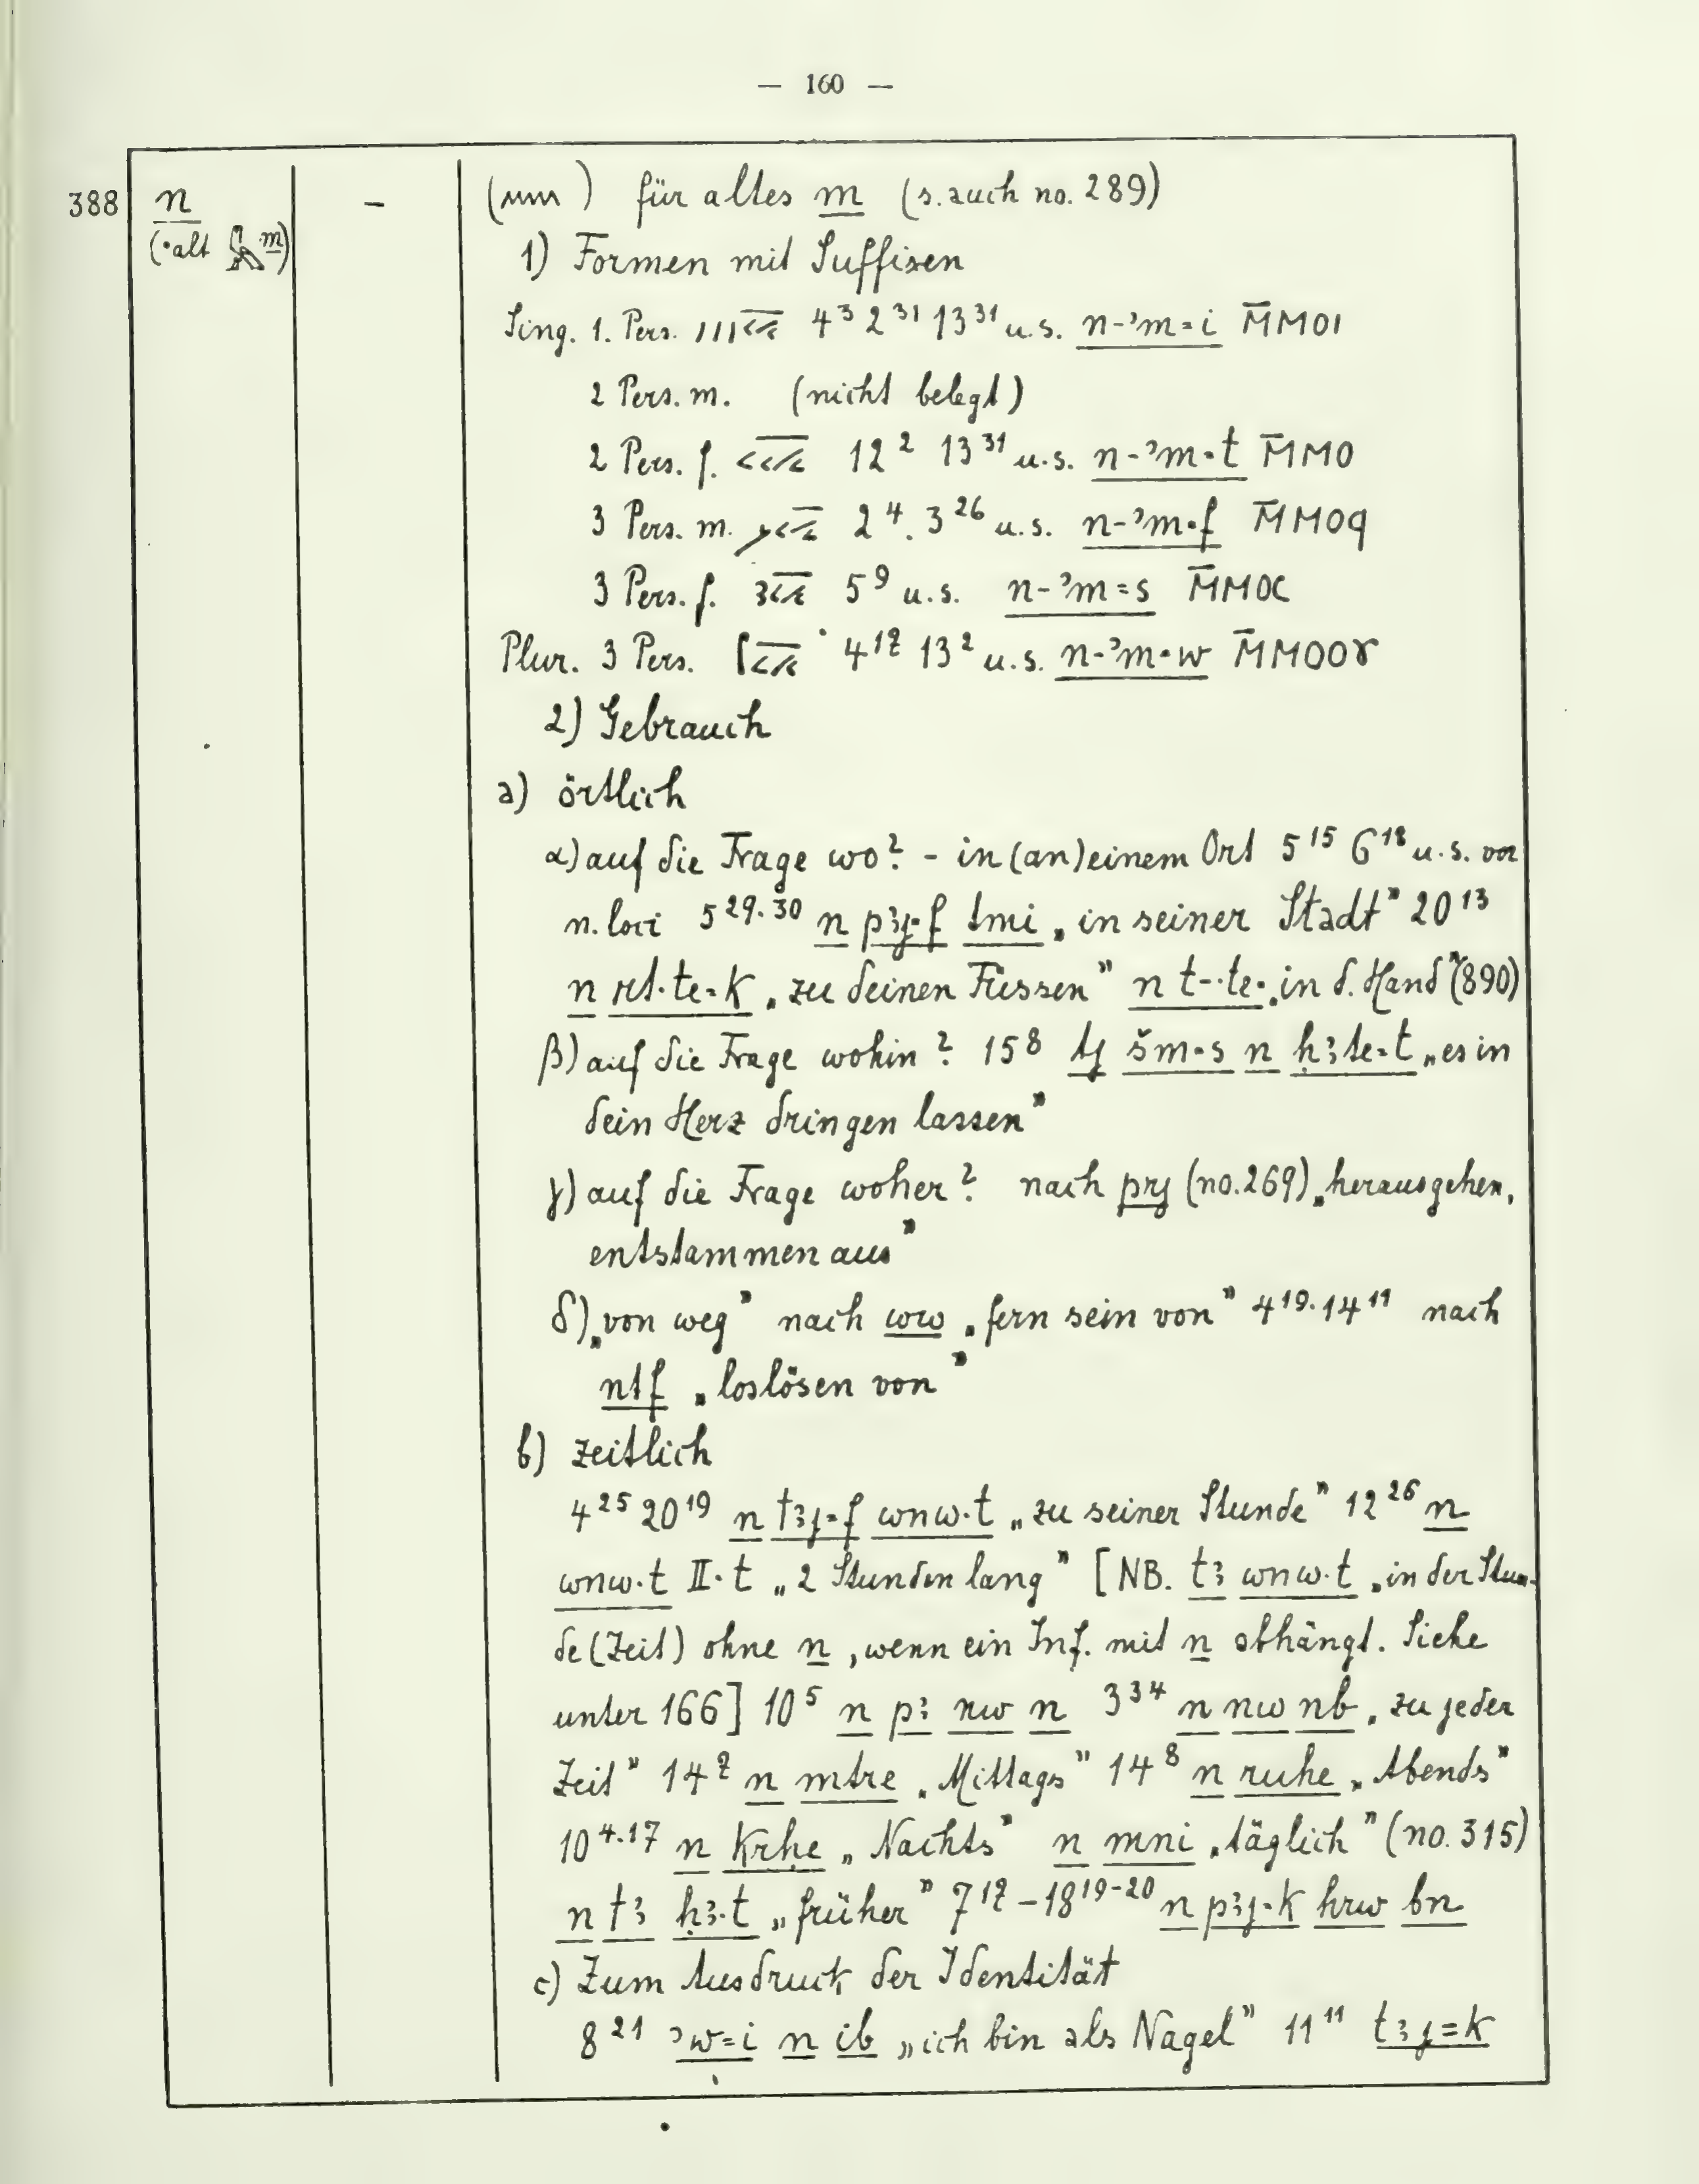 — 160 —
388 n - (𓈖) für altes m (s. auch no. 289)
(·alt 𓅓 m)
1) Formen mit Suffixen
Sing. 1. Pers. 4³ 2³¹ 13³¹ u.s. n-ʾm=i M̄MOI
2 Pers. m. (nicht belegt)
2 Pers. f. 12² 13³¹ u.s. n-ʾm·t M̄MO
3 Pers. m. 2⁴. 3²⁶ u.s. n-ʾm·f M̄MOq
3 Pers. f. 5⁹ u.s. n-ʾm=s M̄MOC
Plur. 3 Pers. 4¹⁷ 13² u.s. n-ʾm·w M̄MOOϒ
2) Gebrauch
a) örtlich
α) auf die Frage wo? - in (an) einem Ort 5¹⁵ 6¹⁸ u.s. vor
n. loci 5²⁹·³⁰ n pꜣy·f tmi „in seiner Stadt” 20¹³
n rt·te=k „zu deinen Füssen” n t-·te· „in d. Hand” (890)
β) auf die Frage wohin? 15⁸ ty šm·s n ḥꜣte=t „es in
dein Herz dringen lassen”
γ) auf die Frage woher? nach pry (no. 269) „herausgehen,
entstammen aus”
δ) „von weg” nach ww „fern sein von” 4¹⁹·14¹⁹ nach
ntf „loslösen von”
b) zeitlich
4²⁵ 20¹⁹ n tꜣy=f wnw·t „zu seiner Stunde” 12²⁶ n
wnw·t II·t „2 Stunden lang” [NB. tꜣ wnw·t „in der Stun-
de (Zeit) ohne n, wenn ein Inf. mit n abhängt. Siehe
unter 166] 10⁵ n pꜣ nw n 3³⁴ n nw nb „zu jeder
Zeit” 14⁷ n mtre „Mittags” 14⁸ n ruhe „Abends”
10⁴·¹⁷ n Krḥe „Nachts” n mni „täglich” (no. 315)
n tꜣ ḥꜣ·t „früher” 7¹⁷ – 18¹⁹⁻²⁰ n pꜣy·k hrw bn
c) Zum Ausdruck der Identität
8²¹ ʾw=i n ib „ich bin als Nagel” 11¹¹ tꜣy=k